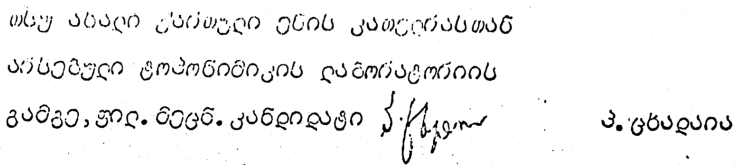 თსუ ახალი ქართული ენის კათედრასთან
არსებული ტოპონიმიკის ლაბორატორიის
გამგე, ფილ. მეცნ. კანდიდატი პ. ცხადაია